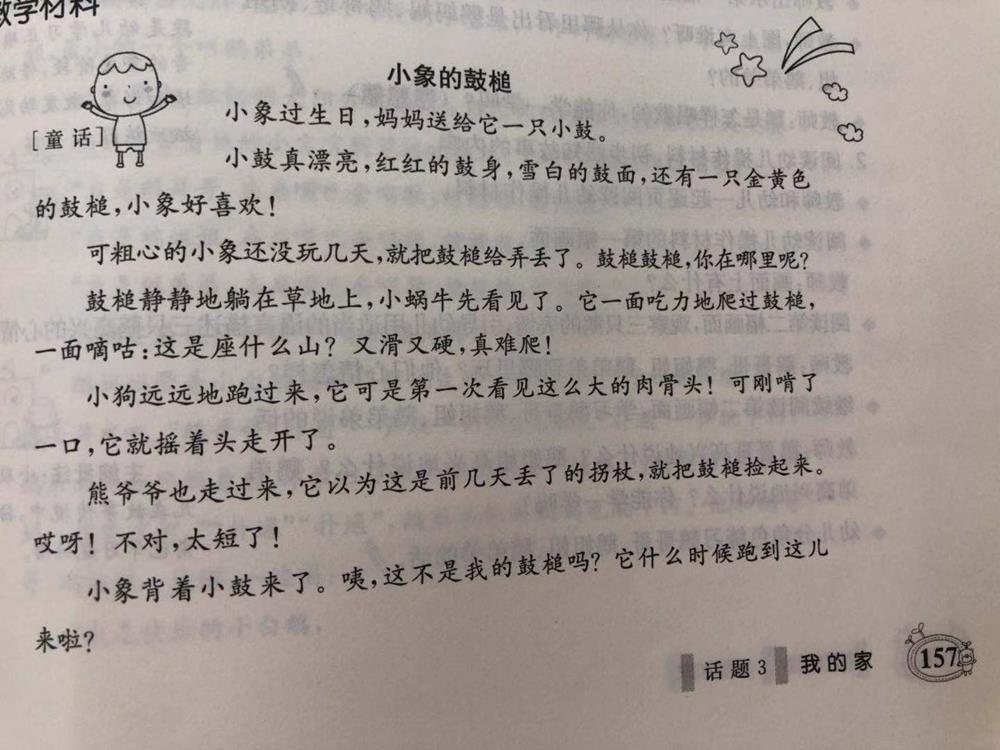 教学材料
小象的鼓槌
[童话]
小象过生日,妈妈送给它一只小鼓。
小鼓真漂亮,红红的鼓身,雪白的鼓面,还有一只金黄色
的鼓槌,小象好喜欢!
可粗心的小象还没玩几天,就把鼓槌给弄丢了。鼓槌鼓槌,你在哪里呢?
鼓槌静静地躺在草地上,小蜗牛先看见了。它一面吃力地爬过鼓槌,
一面嘀咕:这是座什么山?又滑又硬,真难爬!
小狗远远地跑过来,它可是第一次看见这么大的肉骨头!可刚啃了
一口,它就摇着头走开了。
熊爷爷也走过来,它以为这是前几天丢了的拐杖,就把鼓槌捡起来。
哎呀!不对,太短了!
小象背着小鼓来了。咦,这不是我的鼓槌吗?它什么时候跑到这儿
来啦?
话题3 我的家 157